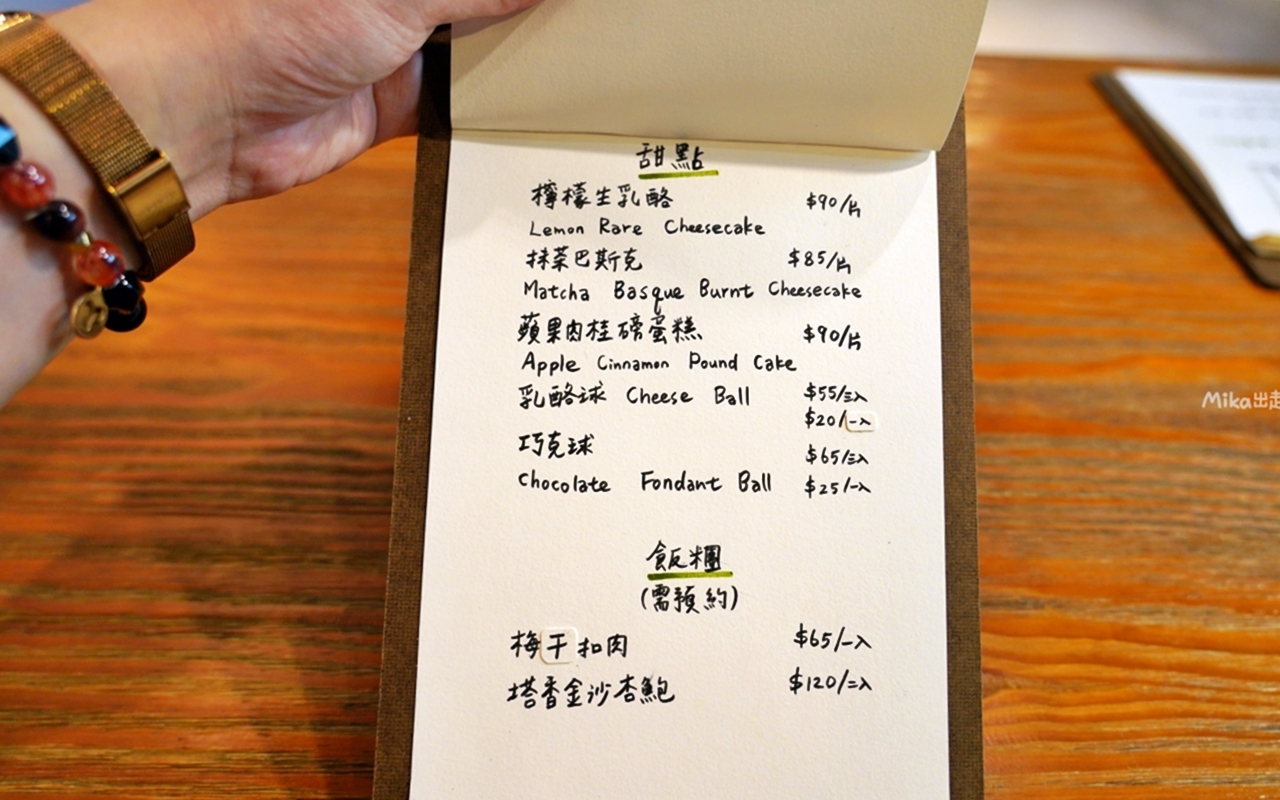 甜點
檸檬生乳酪 $90/片
Lemon Rare Cheesecake
抹茶巴斯克 $85/片
Matcha Basque Burnt Cheesecake
蘋果肉桂磅蛋糕 $90/片
Apple Cinnamon Pound Cake
乳酪球 Cheese Ball $55/三入
$20/一入
巧克球 $65/三入
Chocolate Fondant Ball $25/一入
飯糰
(需預約)
梅干扣肉 $65/一入
塔香金沙杏鮑 $120/二入
Mika出走